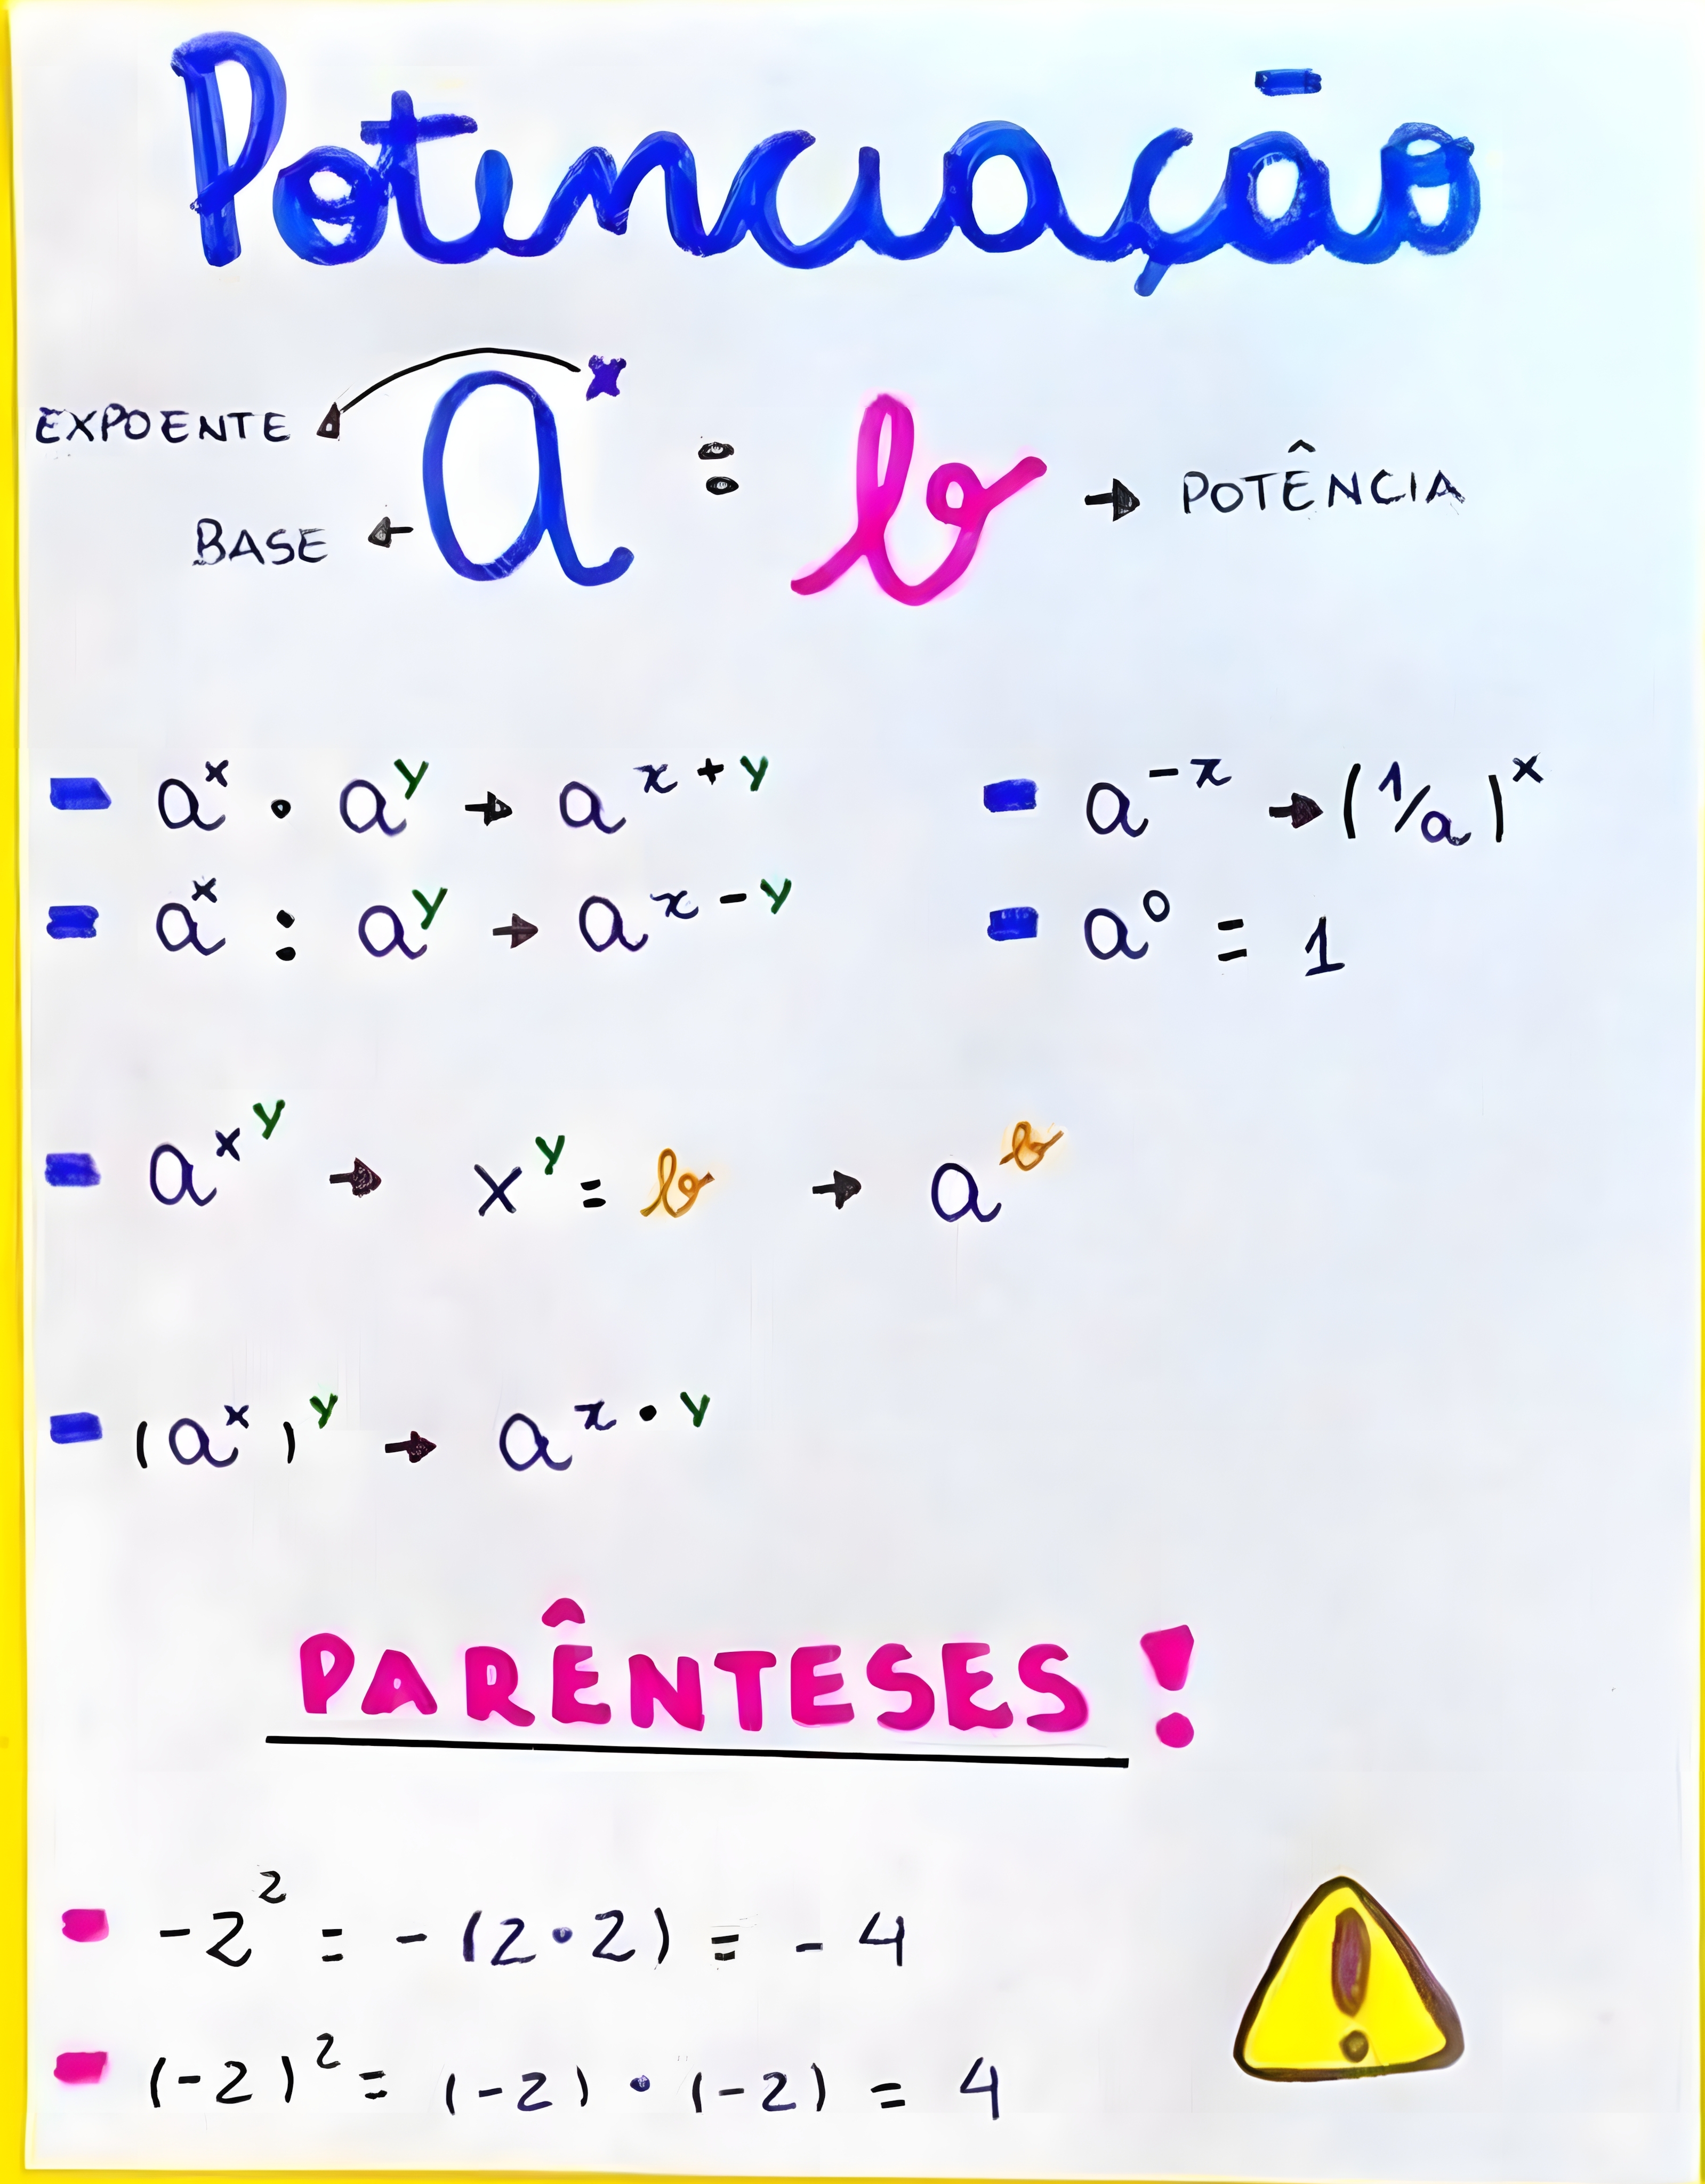 Potenciação
EXPOENTE
aˣ = b → POTÊNCIA
BASE ←
- aˣ · aʸ → aˣ⁺ʸ
- aˣ : aʸ → aˣ⁻ʸ
- a⁻ˣ → (1/a)ˣ
- a⁰ = 1
- a^x^y → xʸ = b → aᵇ
- (aˣ)ʸ → a^x·y
PARÊNTESES!
- -2² = -(2·2) = -4
- (-2)² = (-2)·(-2) = 4